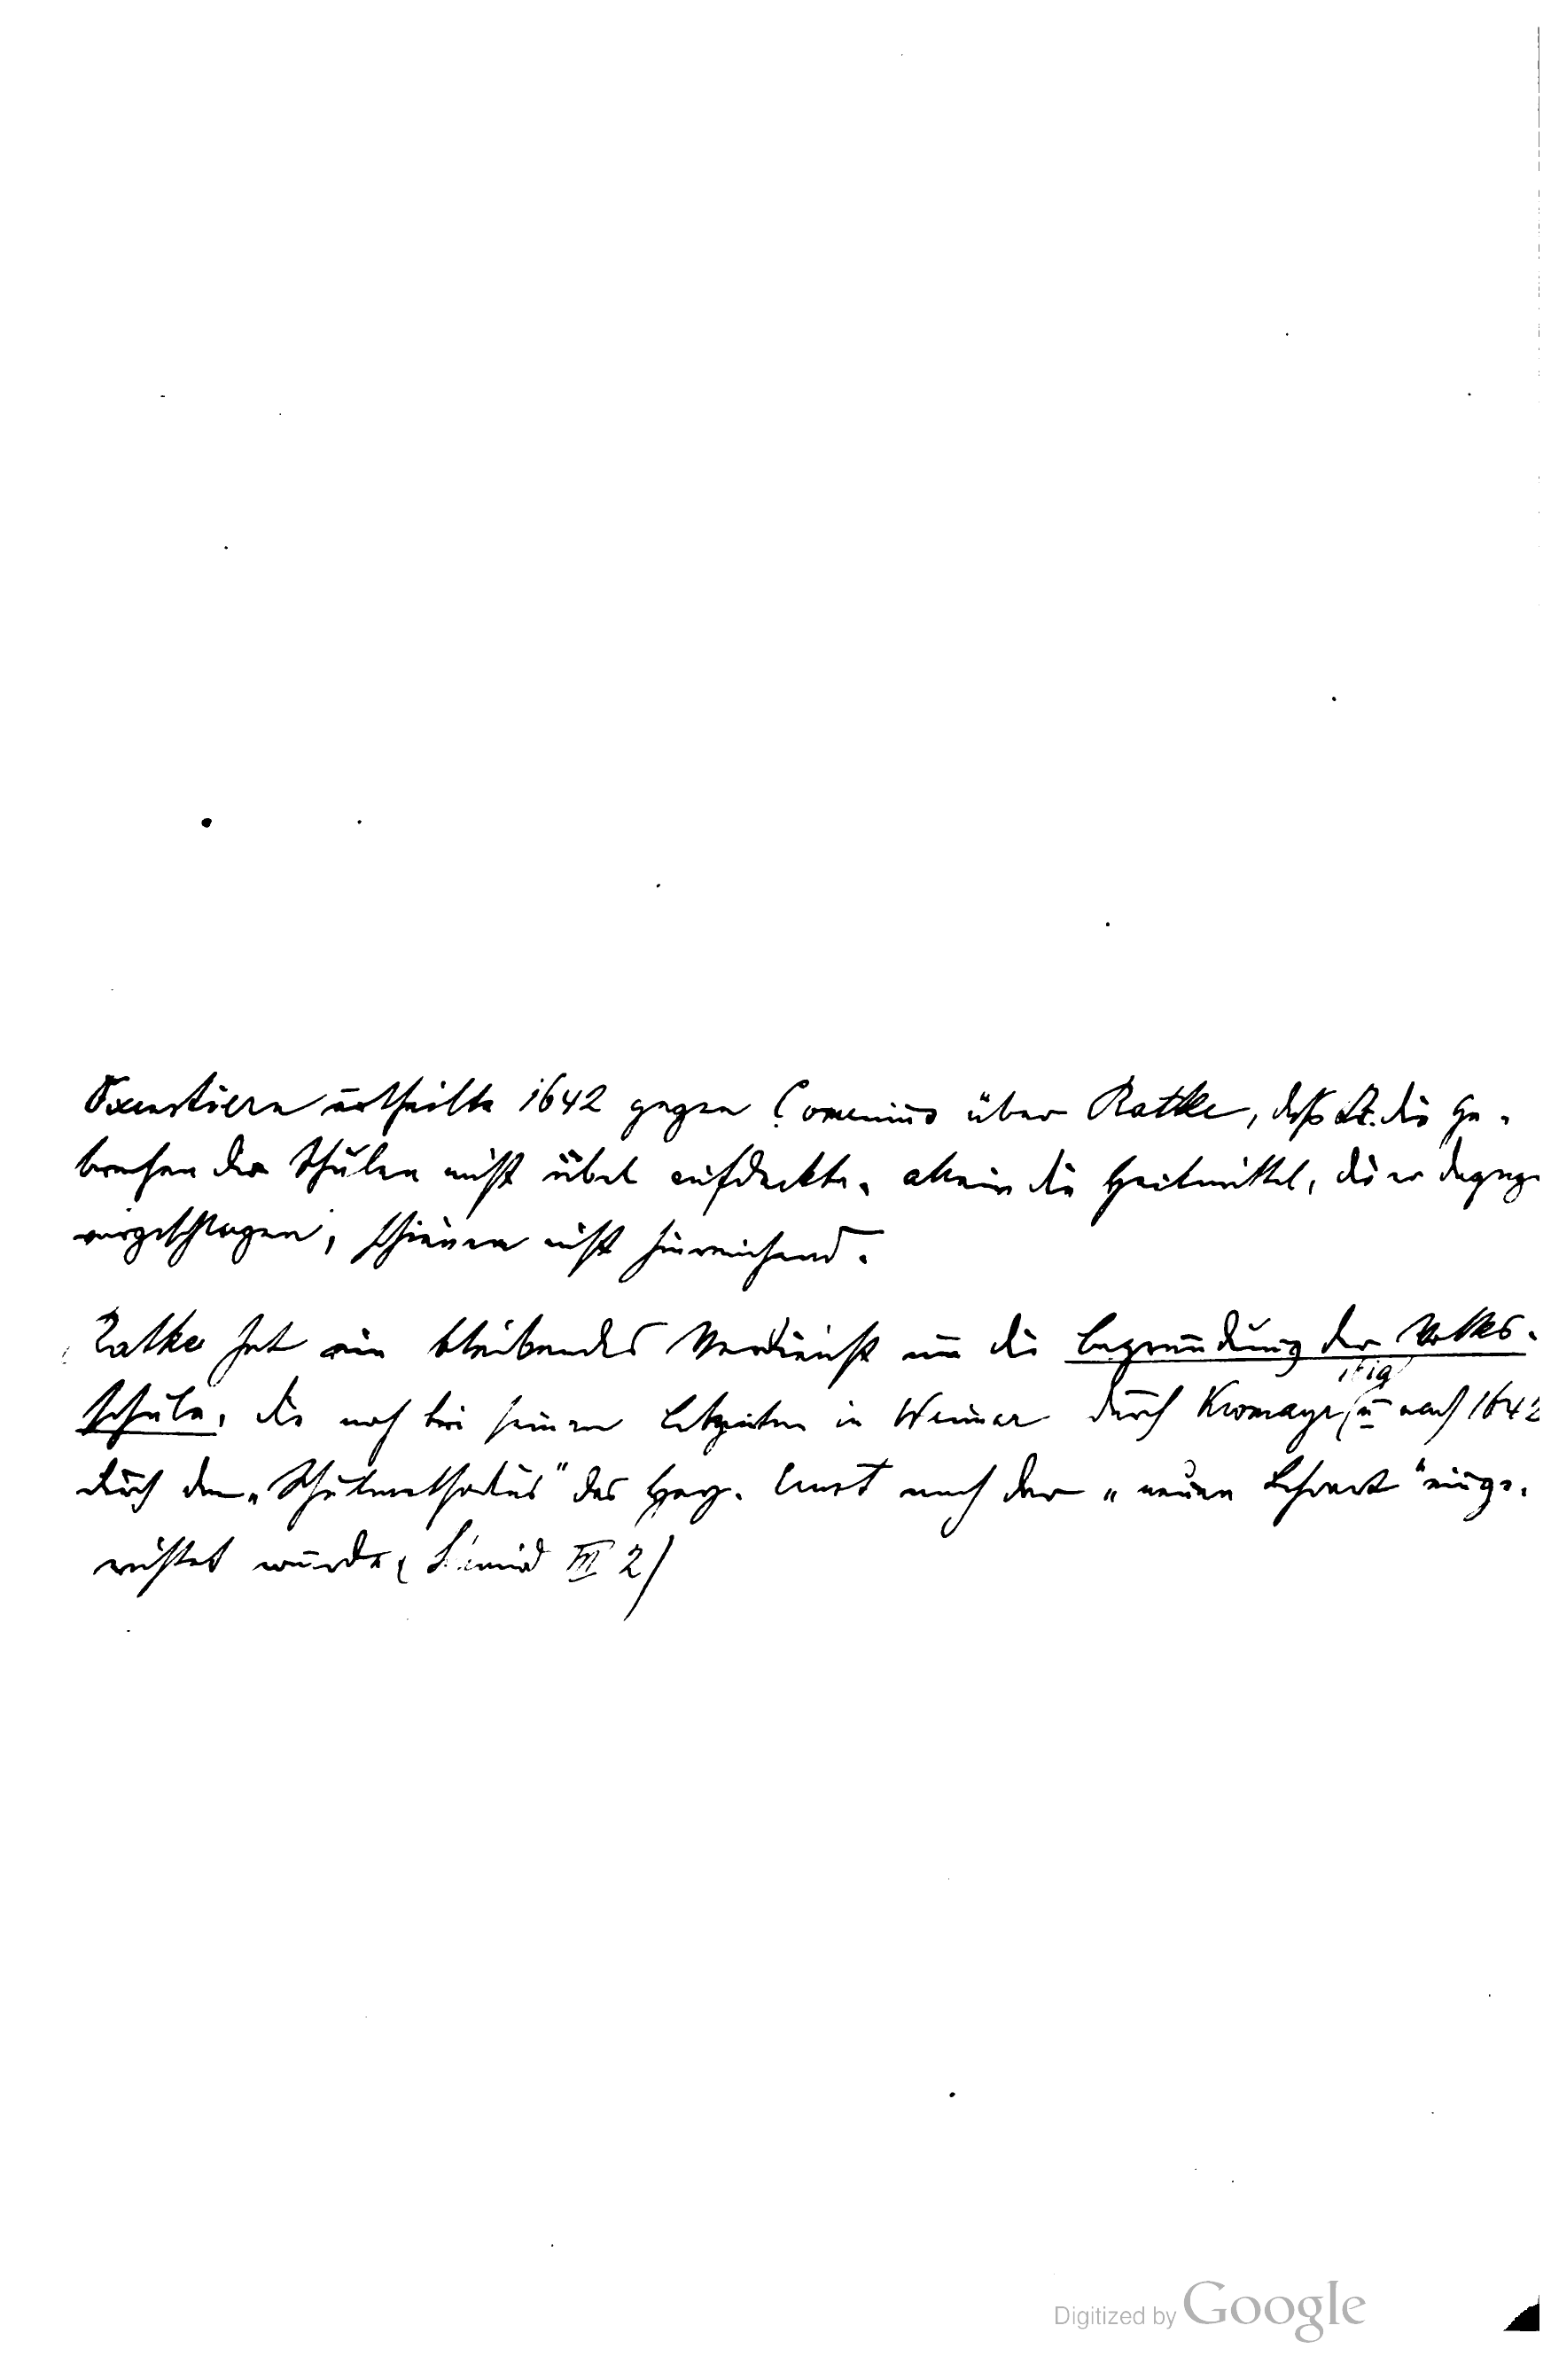 Oxenstiern urtheilte 1642 gegen Comenius über Ratke, daß R. die Ge-
brechen der Schulen nicht übel aufdeckte, allein die Heilmittel, die er dagege
vorgeschlagen, schienen nicht hinreichend.
Ratke hat ein bleibendes Verdienst um die Begründung der Volks-
schule, die noch bei seinen Lebzeiten in Weimar durch Kromayr, u nach 1642
durch den „Schulmethodus" des Herz. Ernst nach der „neuen Lehrart" einge-
richtet wurde (Schmid III 2)
Digitized by Google